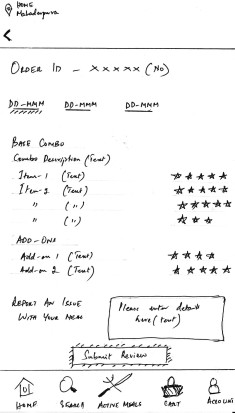 HOME
Mahadevpura
<
ORDER ID - xxxxx (No)
DD-MMM DD-MMM DD-MMM
BASE COMBO
Combo Description (Text)
Item-1 (Text)
Item-2 (Text)
" (")
" (")
ADD-ONS
Add-on 1 (Text)
Add-on 2 (Text)
REPORT AN ISSUE
WITH YOUR MEAL
Please enter details
here (text)
Submit Review
HOME SEARCH ACTIVE MEALS CART ACCOUNT